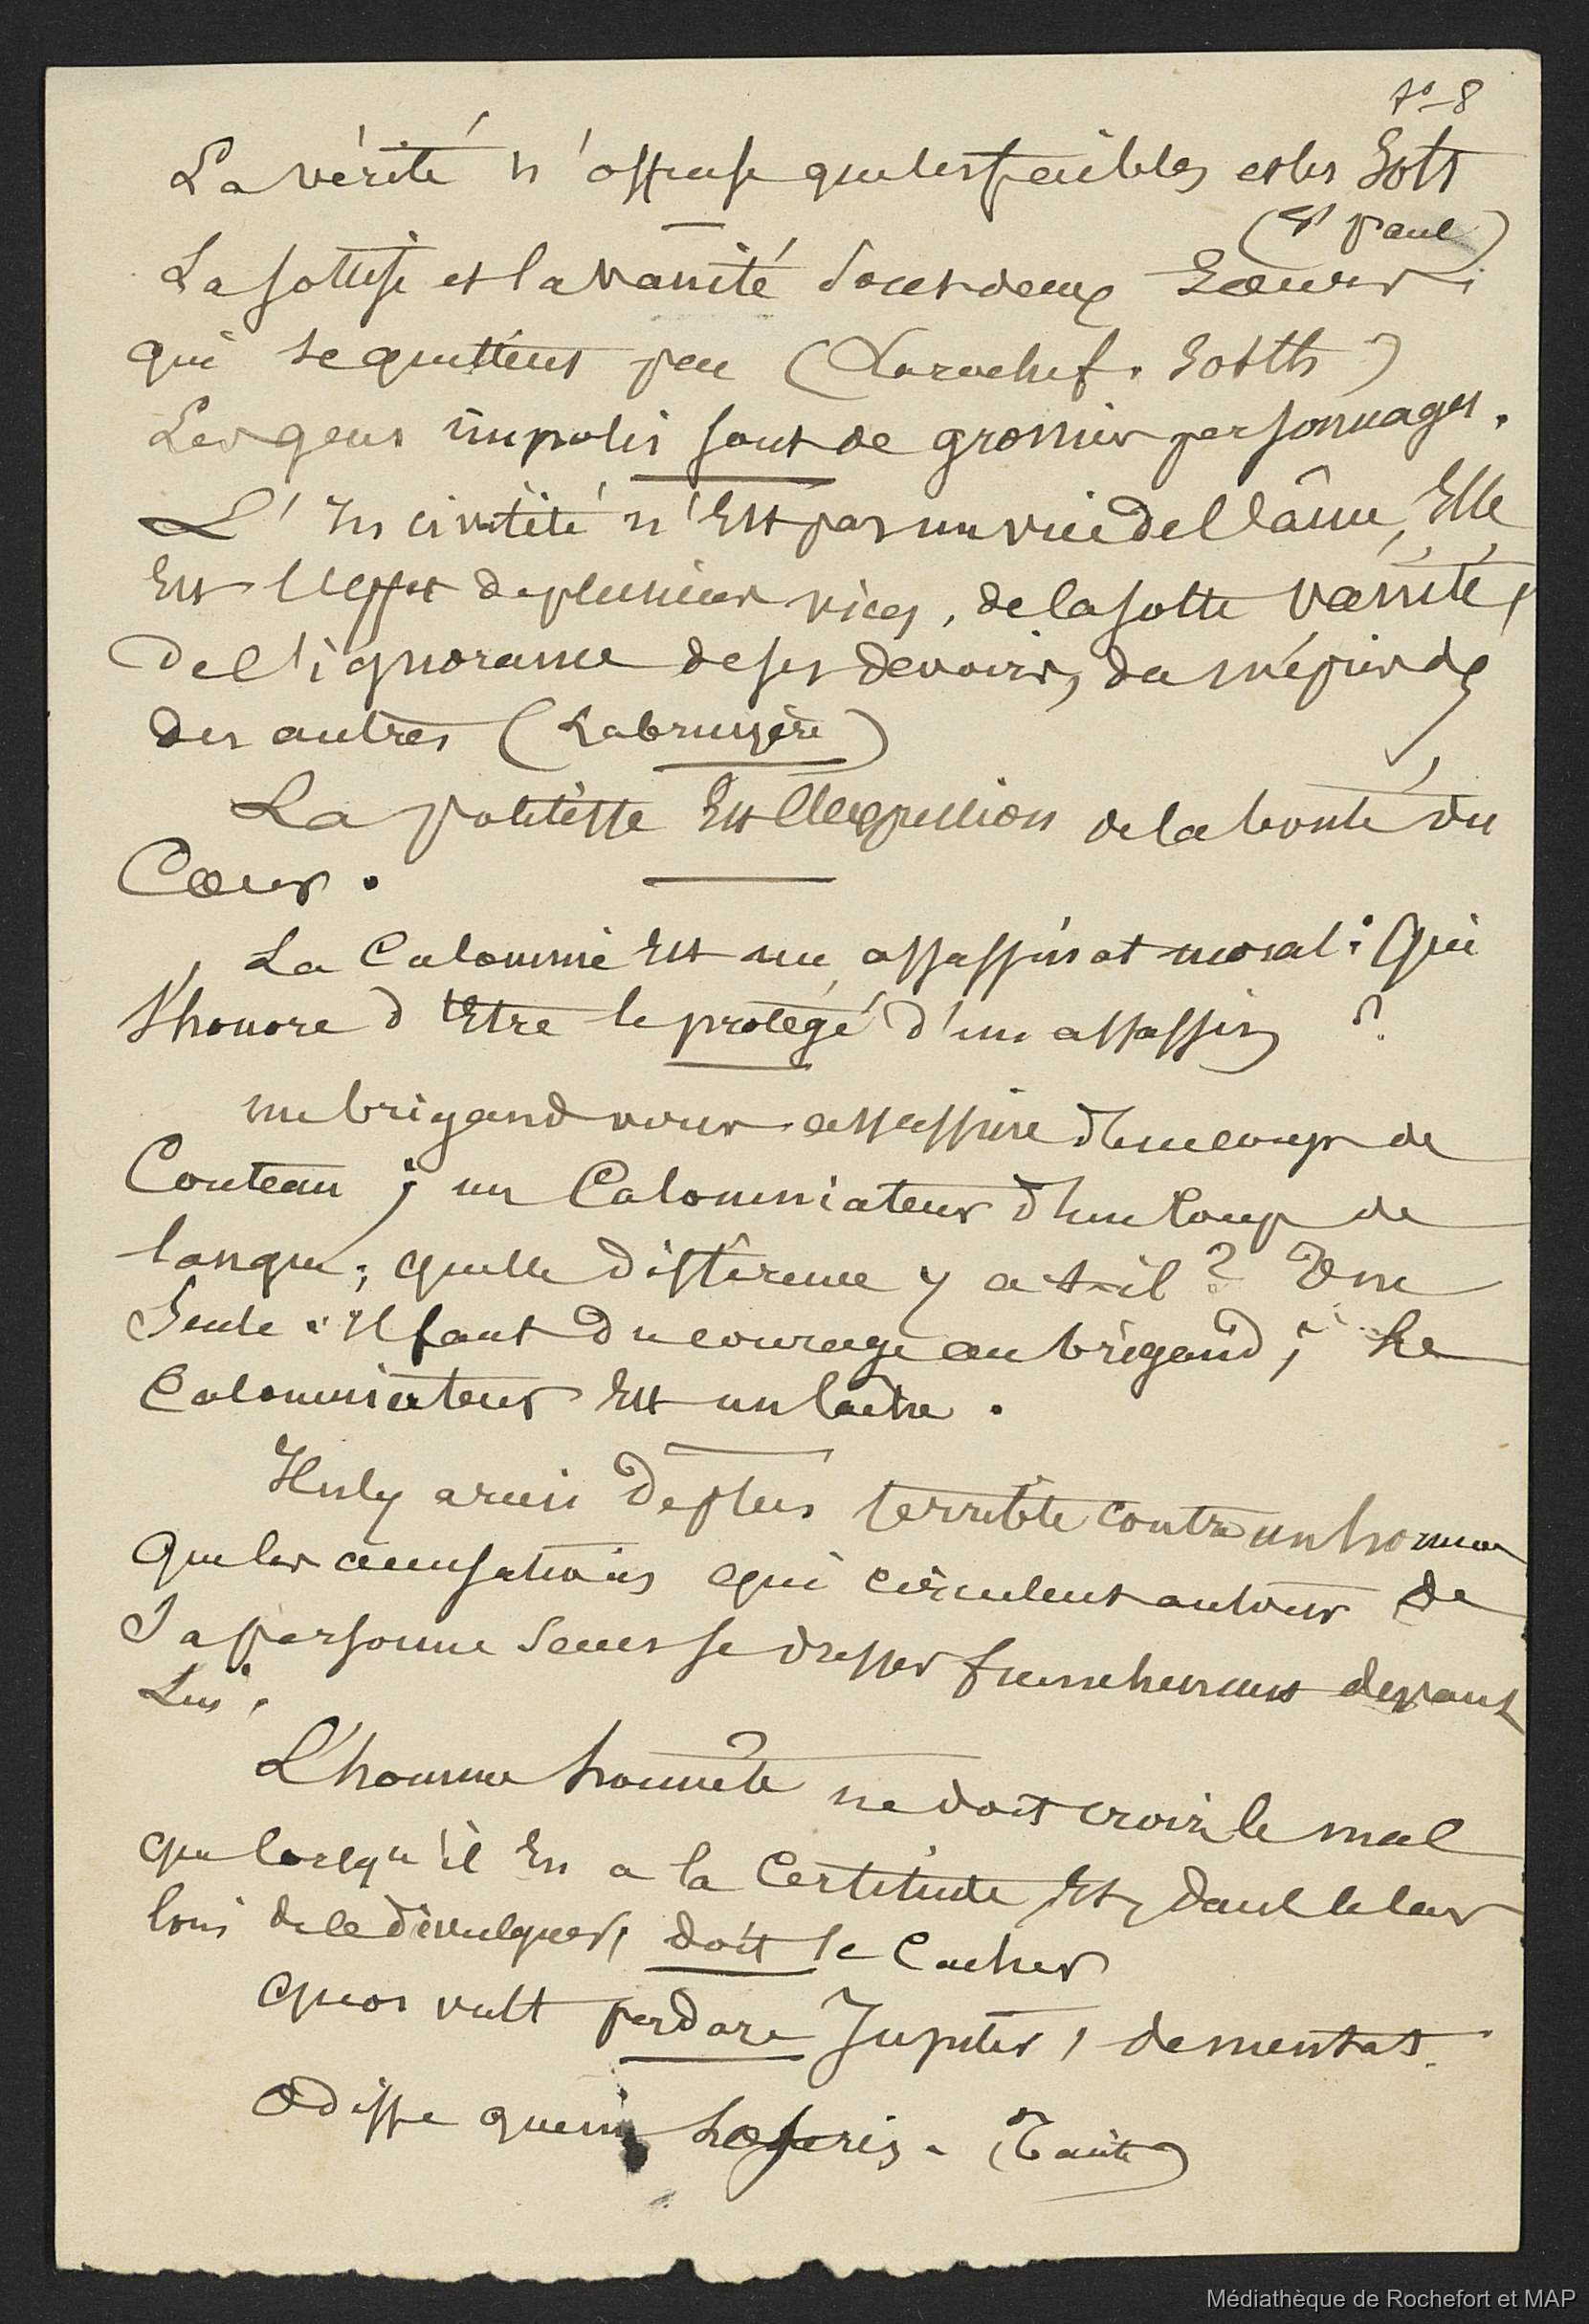 fo 8
La vérité n'offense que les faibles et les Sots
(St Paul)
La sottise et la Vanité sont deux Sœurs
qui se quittent peu (Larochef.
Les gens impolis sont de grossiers personnages.
L'Incivilité n'Est pas un vice de l'âme, Elle
Est l'effet de plusieurs vices, de la sotte Vanité,
de l'ignorance de ses devoirs, du mépris de
des autres (Labruyère)
La politesse Est l'Expression de la bonté du
Cœur.
La Calomnie Est un assassinat moral : Qui
s'honore d'Etre le protégé d'un assassin ?
un brigand vous assassine d'un coup de
Couteau ; un Calomniateur d'un Coup de
langue ; quelle différence y a t-il ? Une
Seule : Il faut du courage au brigand ; Le
Calomniateur Est un lâche.
Il n'y a rien de plus terrible contre un homme
Que les accusations qui circulent autour de
Sa personne sans se dresser franchement devant
Lui.
L'homme honnête ne doit croire le mal
que lorsqu'il En a la Certitude Et, dans le cas
loin de le divulguer, doit le Cacher
Quos vult perdare Jupiter, dementat.
Odisse quem læseris. (Tacite)